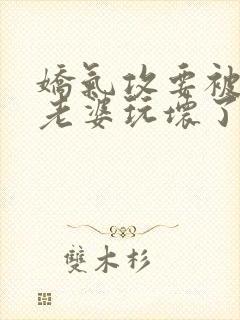 嬌氣攻要被
老婆玩壞了
雙木杉